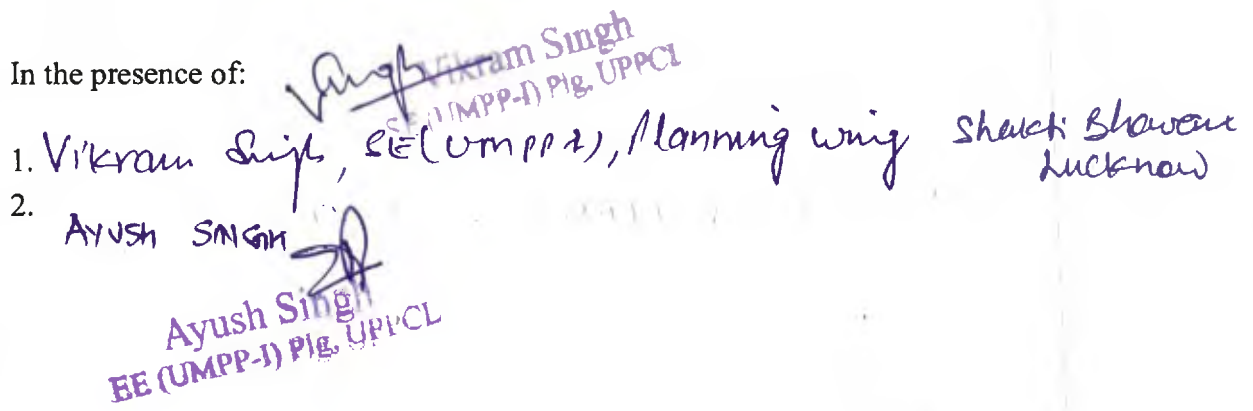 In the presence of:
Vikram Singh
SE (UMPP-I) Plg, UPPCL
1. Vikram Singh, SE(UMPP1), Planning wing Shakti Bhawan
Lucknow
2.
AYUSH SINGH
Ayush Singh
EE (UMPP-I) Plg, UPPCL